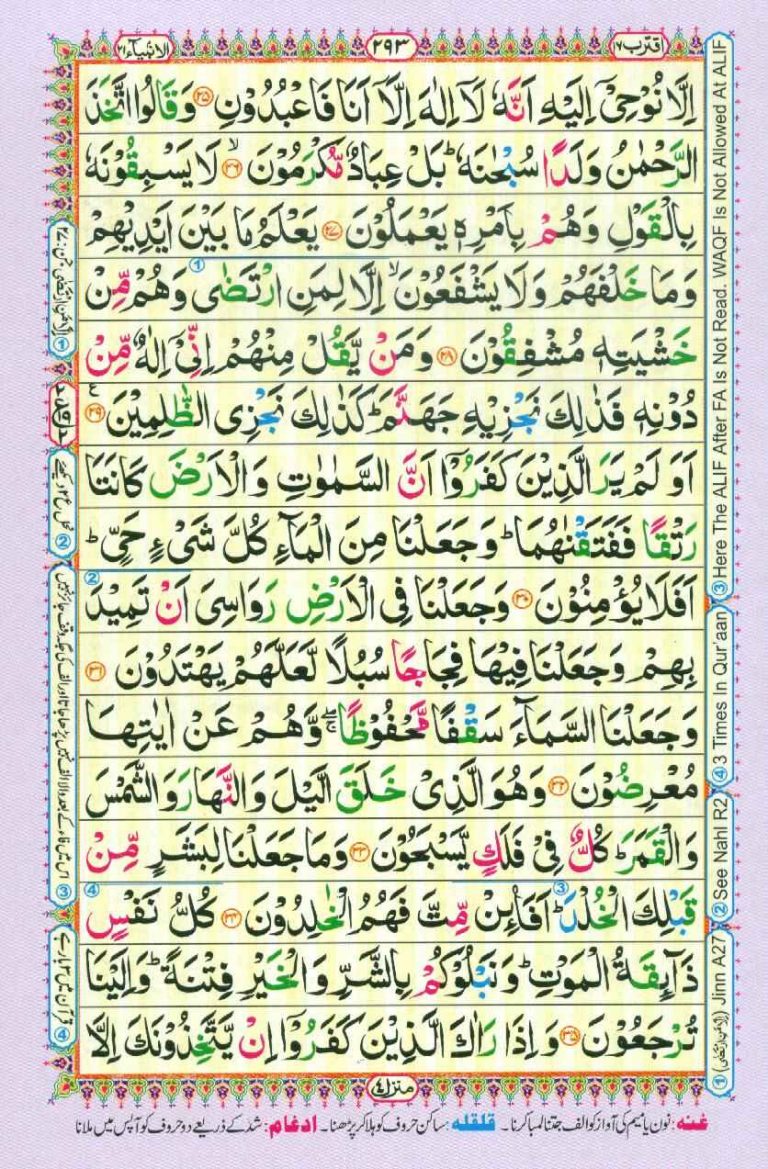 اقترب ١٧
٢٩٣
الانبيآء ٢١
اِلَّا نُوْحِىْۤ اِلَيْهِ اَنَّهٗ لَاۤ اِلٰهَ اِلَّاۤ اَنَا فَاعْبُدُوْنِ ﴿٢٥﴾ وَقَالُوا اتَّخَذَ
الرَّحْمٰنُ وَلَدًا سُبْحٰنَهٗ ؕ بَلْ عِبَادٌ مُّكْرَمُوْنَ ﴿٢٦﴾ ۙ لَا يَسْبِقُوْنَهٗ
بِالْقَوْلِ وَهُمْ بِاَمْرِهٖ يَعْمَلُوْنَ ﴿٢٧﴾ يَعْلَمُ مَا بَيْنَ اَيْدِيْهِمْ
وَمَا خَلْفَهُمْ وَلَا يَشْفَعُوْنَ ۙ اِلَّا لِمَنِ ارْتَضٰى وَهُمْ مِّنْ
خَشْيَتِهٖ مُشْفِقُوْنَ ﴿٢٨﴾ وَمَنْ يَّقُلْ مِنْهُمْ اِنِّىْۤ اِلٰهٌ مِّنْ
دُوْنِهٖ فَذٰلِكَ نَجْزِيْهِ جَهَنَّمَ ؕ كَذٰلِكَ نَجْزِى الظّٰلِمِيْنَ ﴿٢٩﴾ ع
اَوَ لَمْ يَرَ الَّذِيْنَ كَفَرُوْۤا اَنَّ السَّمٰوٰتِ وَالْاَرْضَ كَانَتَا
رَتْقًا فَفَتَقْنٰهُمَا ؕ وَجَعَلْنَا مِنَ الْمَآءِ كُلَّ شَىْءٍ حَىٍّ ؕ
اَفَلَا يُؤْمِنُوْنَ ﴿٣٠﴾ وَجَعَلْنَا فِى الْاَرْضِ رَوَاسِىَ اَنْ تَمِيْدَ
بِهِمْ وَجَعَلْنَا فِيْهَا فِجَاجًا سُبُلًا لَّعَلَّهُمْ يَهْتَدُوْنَ ﴿٣١﴾
وَجَعَلْنَا السَّمَآءَ سَقْفًا مَّحْفُوْظًا ۖۚ وَّهُمْ عَنْ اٰيٰتِهَا
مُعْرِضُوْنَ ﴿٣٢﴾ وَهُوَ الَّذِىْ خَلَقَ الَّيْلَ وَالنَّهَارَ وَالشَّمْسَ
وَالْقَمَرَ ؕ كُلٌّ فِىْ فَلَكٍ يَّسْبَحُوْنَ ﴿٣٣﴾ وَمَا جَعَلْنَا لِبَشَرٍ مِّنْ
قَبْلِكَ الْخُلْدَ ؕ اَفَا۟ئِنْ مِّتَّ فَهُمُ الْخٰلِدُوْنَ ﴿٣٤﴾ كُلُّ نَفْسٍ
ذَآئِقَةُ الْمَوْتِ ؕ وَنَبْلُوْكُمْ بِالشَّرِّ وَالْخَيْرِ فِتْنَةً ؕ وَاِلَيْنَا
تُرْجَعُوْنَ ﴿٣٥﴾ وَاِذَا رَاٰكَ الَّذِيْنَ كَفَرُوْۤا اِنْ يَّتَّخِذُوْنَكَ اِلَّا
منزل ٤
① Jinn A27
② See Nahl R2
④ 3 Times In Qur'aan
③ Here The ALIF After FA Is Not Read. WAQF Is Not Allowed At ALIF
④ قرآن میں ۳ بار ہے
غنه: نون یا میم کی آواز کو الف جتنا لمبا کرنا۔ قلقله: ساکن حروف کو ہلا کر پڑھنا۔ ادغام: شد کے ذریعے دو حروف کو آپس میں ملانا